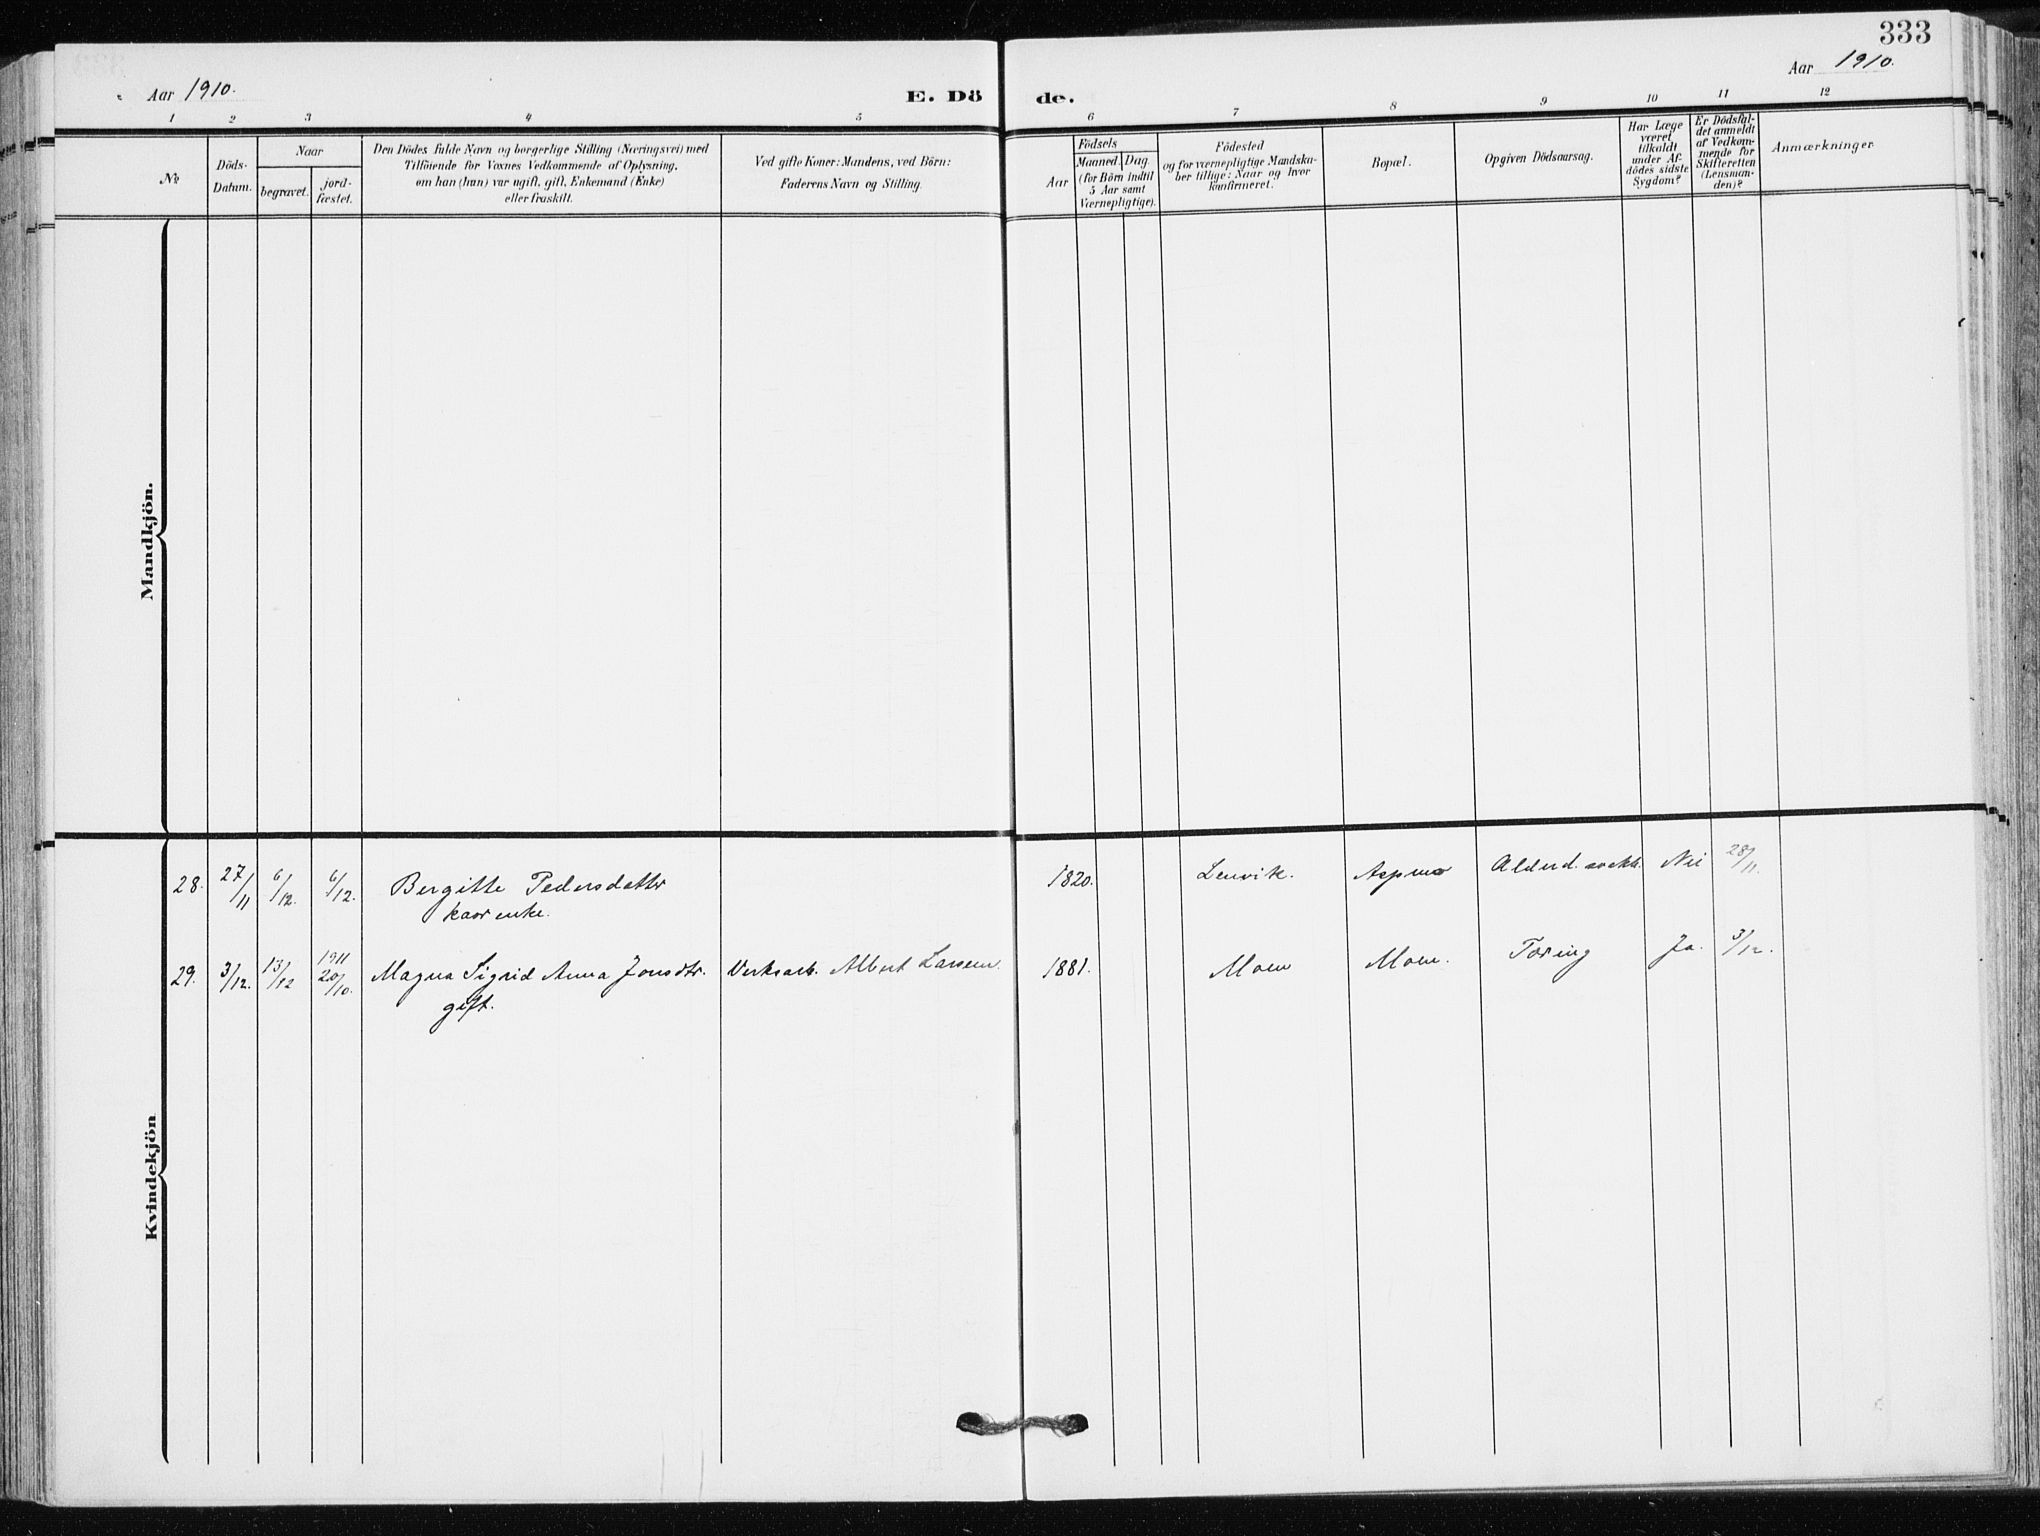 333
Aar 1910.
E. Dö
de.
Aar 1910.
1 2 3 4 5 6 7 8 9 10 11 12
№
Döds-
Datum.
Naar
begravet.
jord-
fæstet.
Den Dödes fulde Navn og borgerlige Stilling (Næringsvei) med
Tilföiende for Voxnes Vedkommende af Oplysning,
om han (hun) var ugift, gift, Enkemand (Enke)
eller fraskilt.
Ved gifte Koner: Mandens, ved Börn:
Faderens Navn og Stilling.
Födsels
Aar
Maaned. Dag.
(for Börn indtil
5 Aar samt
Værnepligtige).
Födested
og for værnepligtige Mandska-
ber tillige: Naar og hvor
konfirmeret.
Bopæl.
Opgiven Dödsaarsag.
Har Læge
været
tilkaldt
under Af-
dödes sidste
Sygdom?
Er Dödsfal-
det anmeldt
af Vedkom-
mende for
Skifteretten
(Lensman-
den)?
Anmærkninger
Mandkjön.
Kvindekjön
28. 27/11 6/12. 6/12. Bergitte Pedersdatter 1820. Lenvik. Aspmo Alderd. svekk. Nei 28/11.
enke.
1911
29. 3/12. 13/12 20/10. Magna Sigrid Anna Jonsdtr. Verksarb. Albert Larsen. 1881. Moen Moen. Tæring Ja. 3/12.
gift.